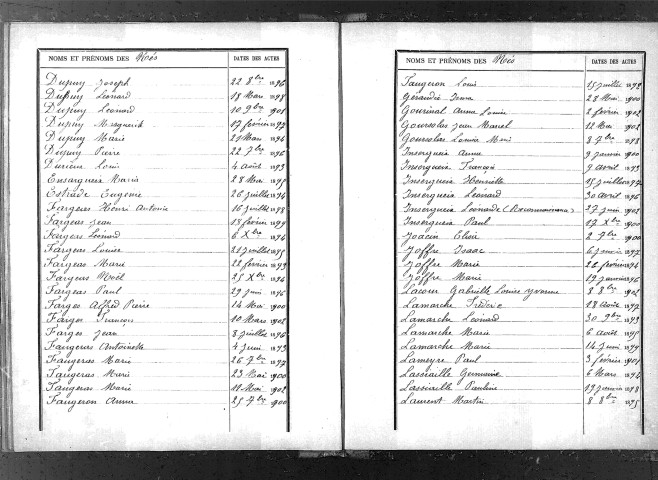 NOMS ET PRÉNOMS DES Nés DATES DES ACTES
Dupuy Joseph 22 8bre 1896
Dupuy Léonard 18 Mars 1898
Dupuy Léonard 10 9bre 1901
Dupuy Marguerite 17 février
Dupuy Marie 21 Mars 1896
Dupuy Pierre 22 7bre
Durieux Louis 4 août 1893
Marie 28 Mai
Estrade Eugène 26 juillet 1894
Farges Henri Antoine 16 juillet 1898
Farges Jean 18 février
Farges Léonard 6 Xbre 1894
Fargeas Louise 21 juillet 1895
Fargeas Marie 22 février 1899
Fargeas Noël 25 Xbre 1896
Fargeas Paul 29 juin 1896
Farges Alfred Pierre 14 Mai 1900
Farges François 10 Mars 1902
Farges Jean 8 juillet 1896
Faugeras Antoinette 4 juin 1893
Faugeras Marie 26 7bre
Faugeras Marie 23 Mai 1900
Faugeras Marie 11 Mai 1902
Faugeron Anna 25 7bre 1900
NOMS ET PRÉNOMS DES Nés DATES DES ACTES
Faugeron Louis 15 juillet
28 Mai 1900
Anna Louise 2 février 1902
Goursolas Jean Marcel 12 Mai 1902
Goursolas Louise 8 7bre 1898
Insergueix Anna 9 janvier 1900
Insergueix François 9 avril 1893
Insergueix Henriette 15 juillet 1897
Insergueix Léonard 30 avril 1896
Insergueix Léonarde (Reconnaissance) 27 juin 1901
Insergueix Paul 17 Xbre 1900
2 7bre 1900
Joffre Isaac 6 1897
Joffre Marie 22 février 1894
Joffre Marie 19 janvier 1896
Lacour Gabrielle Louise Yvonne 8 8bre 1902
Lamarche Frédéric 18 Août 1897
Lamarche Léonard 30 9bre 1893
Lamarche Marie 6 août 1895
Lamarche Marie 14 juin 1899
Lameyre Paul 3 février 1901
Lassiaille Germaine 6 Mars 1894
Lassiaille Pauline 17 janvier 1898
Laurent Martin 8 8bre 1895